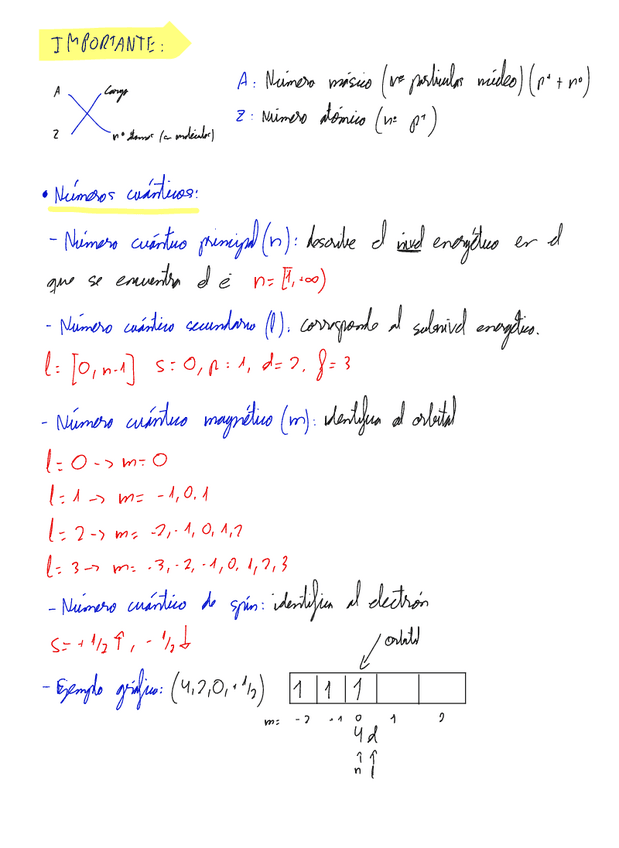 IMPORTANTE:
A Carga
Z nº átomos (o moléculas)
A: Número másico (nº partículas núcleo) (p⁺ + n⁰)
Z: Número atómico (nº p⁺)
• Números cuánticos:
- Número cuántico principal (n): describe el nivel energético en el
que se encuentra el é n= [1, +∞)
- Número cuántico secundario (l): corresponde al subnivel energético.
l= [0, n-1] s=0, p=1, d=2, f=3
- Número cuántico magnético (m): identifica al orbital
l=0 -> m=0
l=1 -> m= -1,0,1
l=2 -> m= -2,-1,0,1,2
l=3 -> m= -3,-2,-1,0,1,2,3
- Número cuántico de spin: identifica al electrón
s=+1/2 ↑, -1/2 ↓
orbital
- Ejemplo gráfico: (4,2,0,+1/2) 1 1 1
m= -2 -1 0 1 2
4 d
↑ ↑
n l